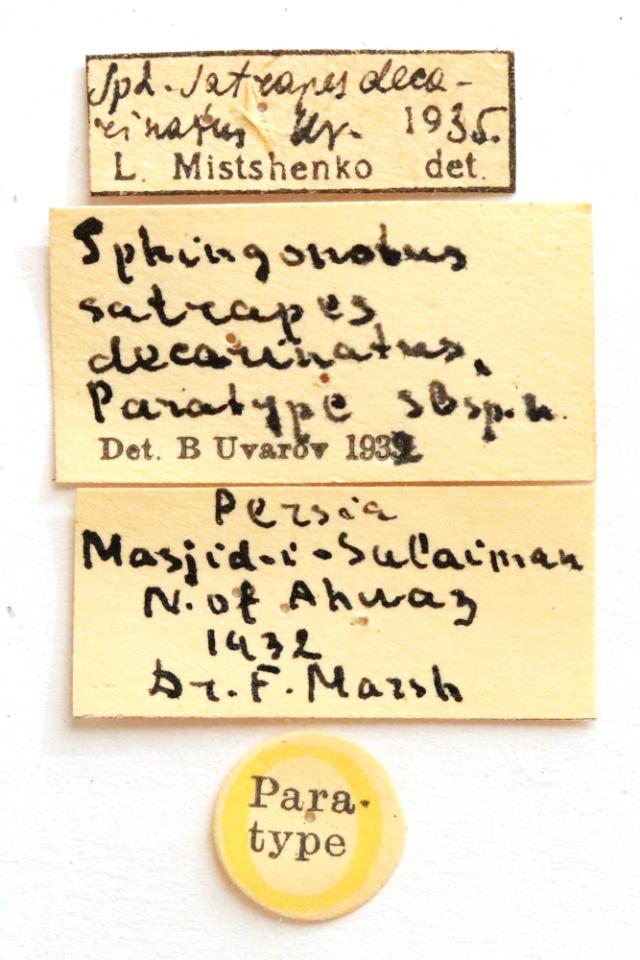 Sph. satrapes deca-
rinatus Uv. 1935.
L. Mistshenko det.
Sphingonotus
satrapes
decarinatus,
Paratype sbsp. n.
Det. B Uvarov 1932
Persia
Masjid-i-Sulaiman
N. of Ahwaz
1932
Dr. F. Marsh
Para-
type